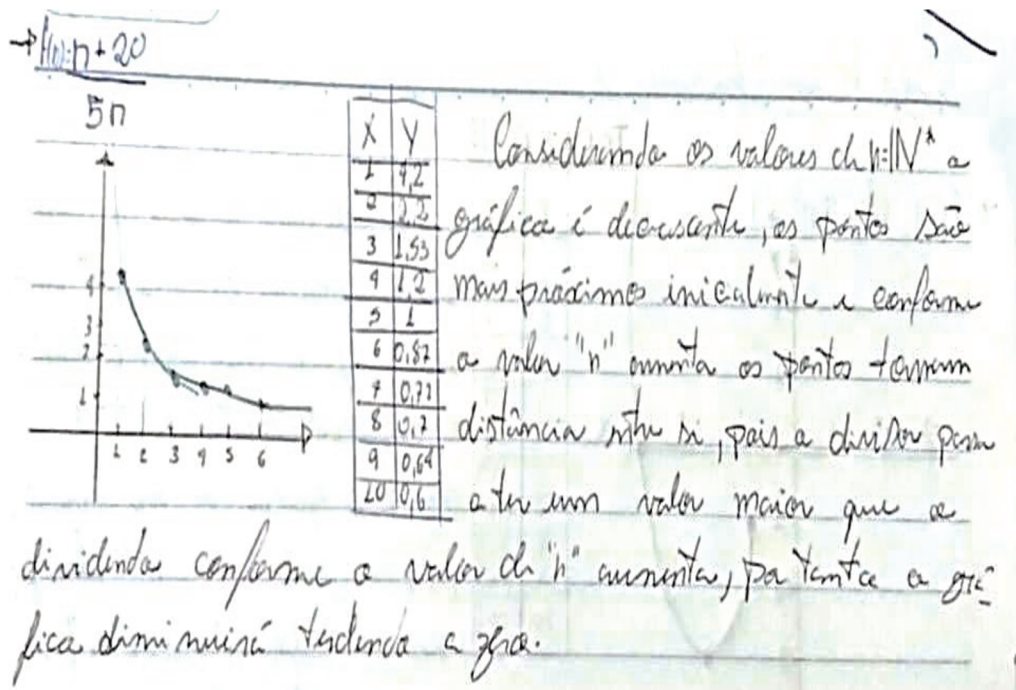 → f(n)=n+20
5n
X Y
1 4,2
2 2,2
3 1,53
4 1,2
5 1
6 0,87
7 0,77
8 0,7
9 0,64
10 0,6
4
3
2
1
1 2 3 4 5 6
Considerando os valores de n=IN* o
gráfico é decrescente, os pontos são
mais próximos inicalmente e conforme
o valor "n" aumenta os pontos tomam
distância entre si, pois o divisor passa
a ter um valor maior que o
dividendo conforme o valor de "n" aumenta, portanto o grá-
fico diminuirá tendendo a zero.